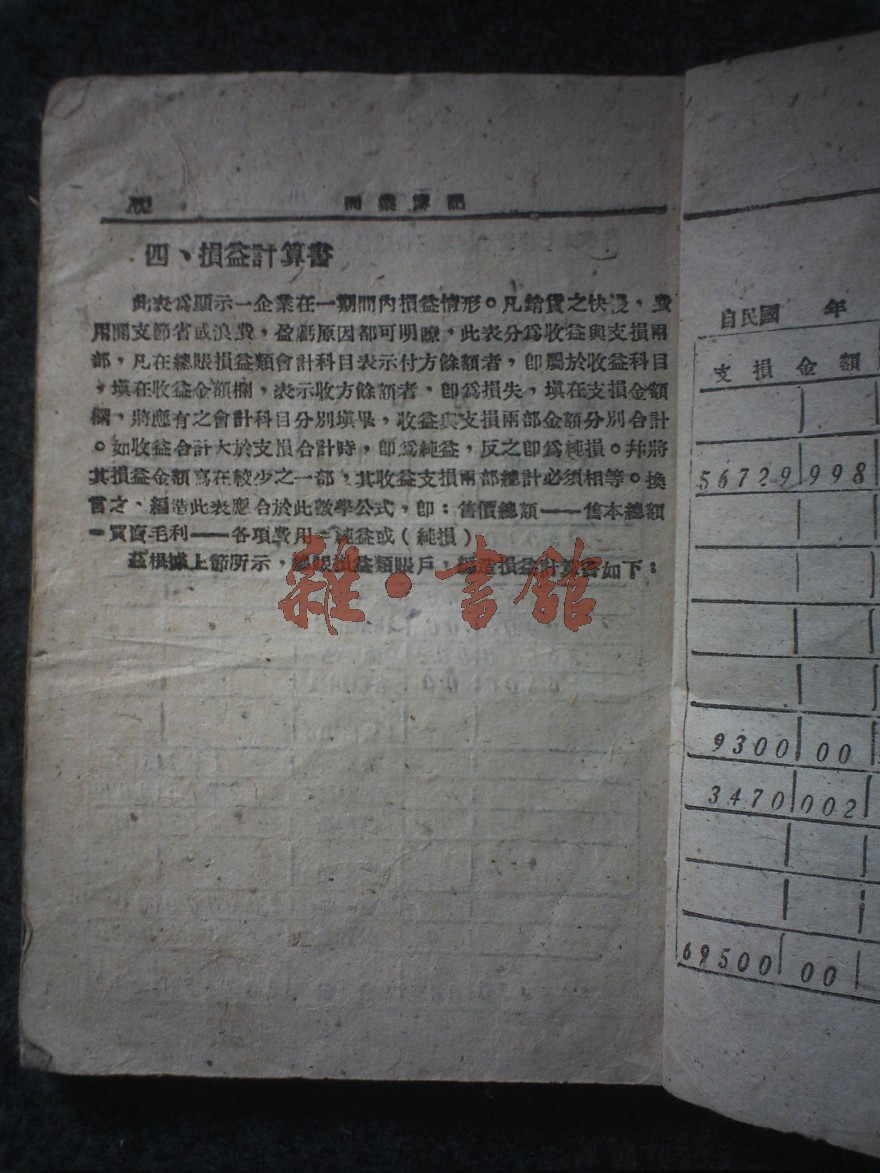 商業簿記
四、損益計算書
此表為顯示一企業在一期間內損益情形。凡銷貨之快慢，費
用開支節省或浪費，盈虧原因都可明瞭，此表分為收益與支損兩
部，凡在總賬損益類會計科目表示付方餘額者，卽屬於收益科目
，塡在收益金額欄，表示收方餘額者，卽為損失，塡在支損金額
欄，將應有之會計科目分別塡畢，收益與支損兩部金額分別合計
。如收益合計大於支損合計時，卽為純益，反之卽為純損。幷將
其損益金額寫在較少之一部，其收益支損兩部總計必須相等。換
言之，編造此表應合於此數學公式，卽：售價總額——售本總額
＝買賣毛利——各項費用＝純益或（純損）
茲根據上節所示，總賬損益類賬戶，編造損益計算書如下：
雜·書館
自民國 年
支損金額
56729 998
9300 00
3470 002
69500 00